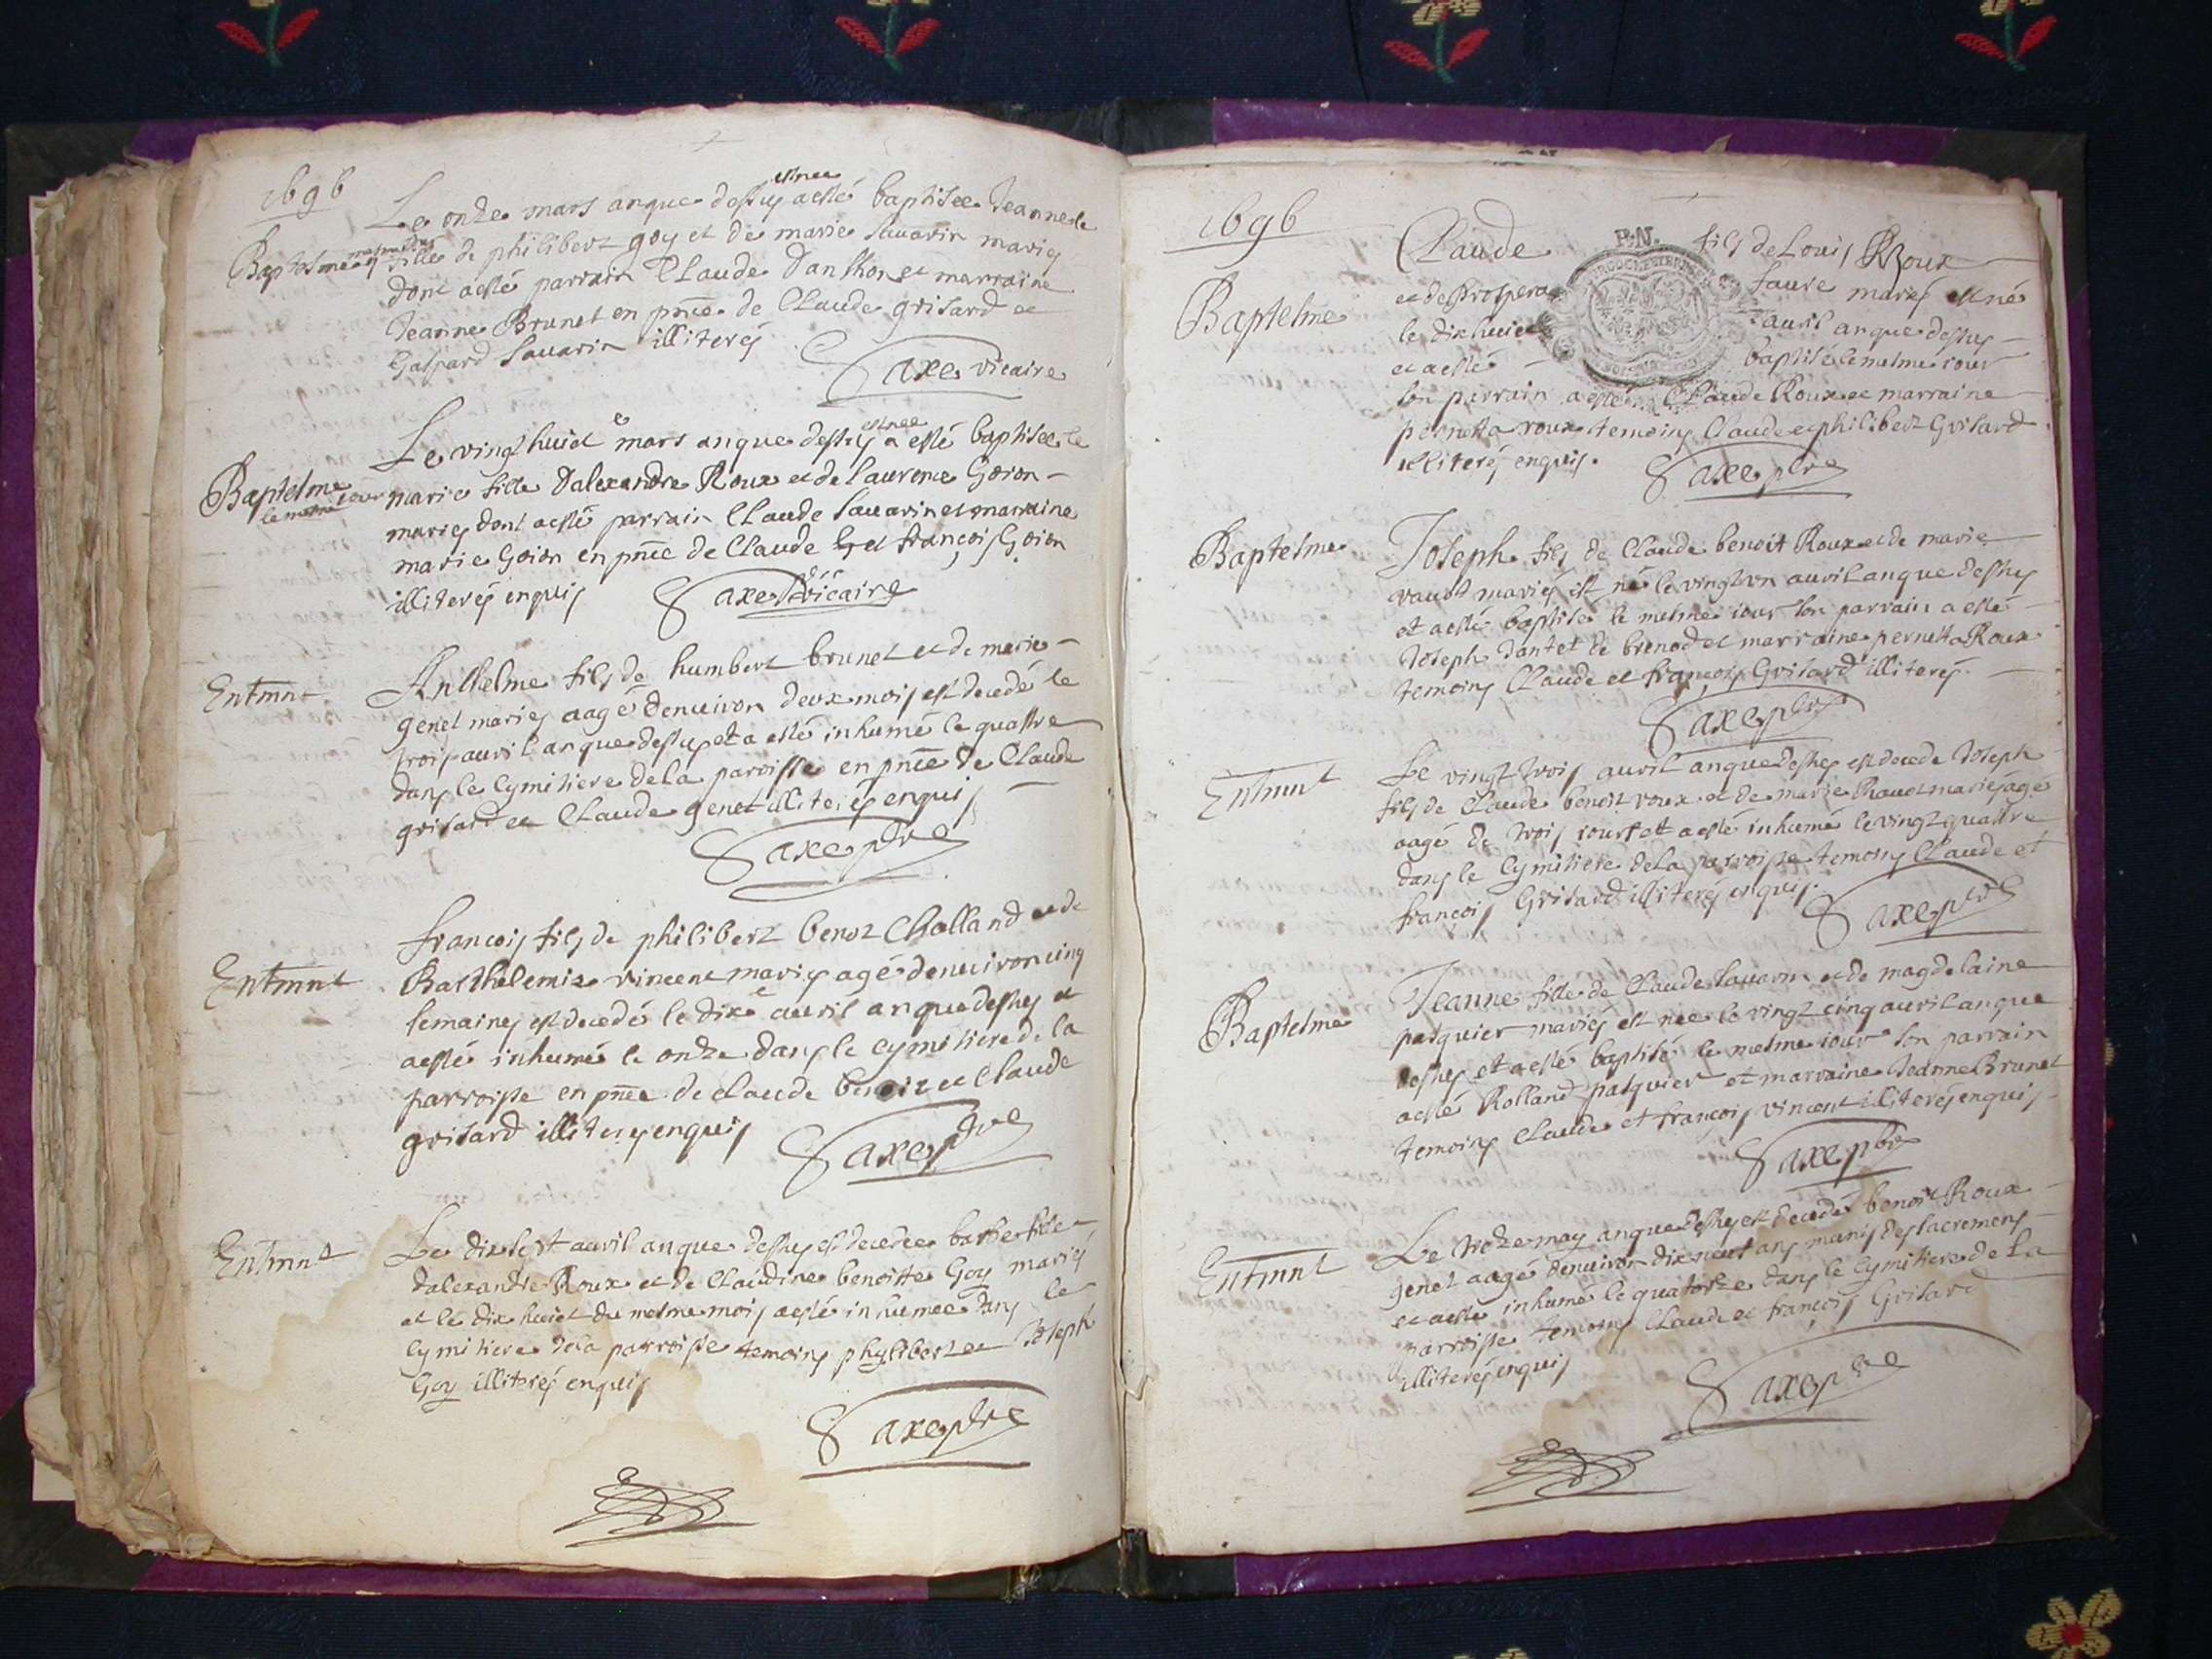 1696
Le onze mars anque dessus est nee a esté baptisée Jeanne le
Baptesme fille de philibert goy et de marie Savarin mariés
dont a esté parrain Claude Danthon et marraine
Jeanne Brunet en pnce de Claude grisard et
Gaspard Savarin illiterés
Saxe vicaire
Le vingt huict e mars anque dessus est nee a esté baptisée le
Baptesme le mesme jour marie fille Dalexandre Roux et de Laurence Goion
mariés dont a esté parrain Claude Savarin et marraine
marie Goion en pnce de Claude et françois Goion
illiterés enquis
Saxe vicaire
Entmnt Anthelme fils de humbert brunet et de marie
genet mariés aagé denuiron deux mois est decedé le
trois auril anque dessus et a esté inhumé le quattre
dans le Cymitiere de la paroisse en pnce de Claude
grisard et Claude genet illiterés enquis
Saxe ptre
françois fils de philibert benoz Cholland et de
Entmnt Barthelemie vincent mariés agé denuiron cinq
semaines est decedé le dixe auril anque dessus et
a esté inhumé le onze dans le cymitiere de la
parroisse en pnce de Claude benoiz et Claude
grisard illiterés enquis
Saxe ptre
Entmnt Le dixsept auril anque dessus est decedee barbe fille
dalexandre Roux et de Claudine benoitte Goy mariés
et le dix huict du mesme mois a esté inhumee dans le
Cymitiere de la parroisse temoins phylibert et Joseph
Goy illiterés enquis
Saxe ptre
1696
Claude fils de Louis Roux
P.N.
Baptesme et de Prospera faure mariés est né
le dixhuict auril anque dessus
et a esté baptisé le mesme iour
son parrain a esté Claude Roux et marraine
pernetta roux temoins Claude et philibert Grisard
illiterés enquis.
Saxe ptre
Baptesme Joseph fils de Claude benoit Roux et de marie
mariés est né le vingt vn auril anque dessus
et a esté baptisé le mesme iour son parrain a esté
Joseph Jantet de brenod et marraine pernetta Roux
temoins Claude et françois Grisard illiterés.
Saxe ptre
Entmnt Le vingt trois auril anque dessus est decede Joseph
fils de Claude benoit roux et de marie mariés agé
aagé de trois iours et a esté inhumé le vingt quattre
dans le Cymitiere de la parroisse temoins Claude et
françois Grisard illiterés enquis.
Saxe ptre
Baptesme Jeanne fille de Claude Savarin et de magdelaine
pasquier mariés est nee le vingt cinq auril anque
dessus et a esté baptisé le mesme iour son parrain
a esté Rolland pasquier et marraine Jeanne Brunet
temoins Claude et françois vincent illiterés enquis
Saxe ptre
Entmnt Le treze may anque dessus est decedé benoit Roux
genet aagé denuiron dix neuf ans munis des sacremens
et a esté inhumé le quatorze dans le Cymitiere de la
parroisse temoins Claude et françois Grisard
illiterés enquis
Saxe ptre